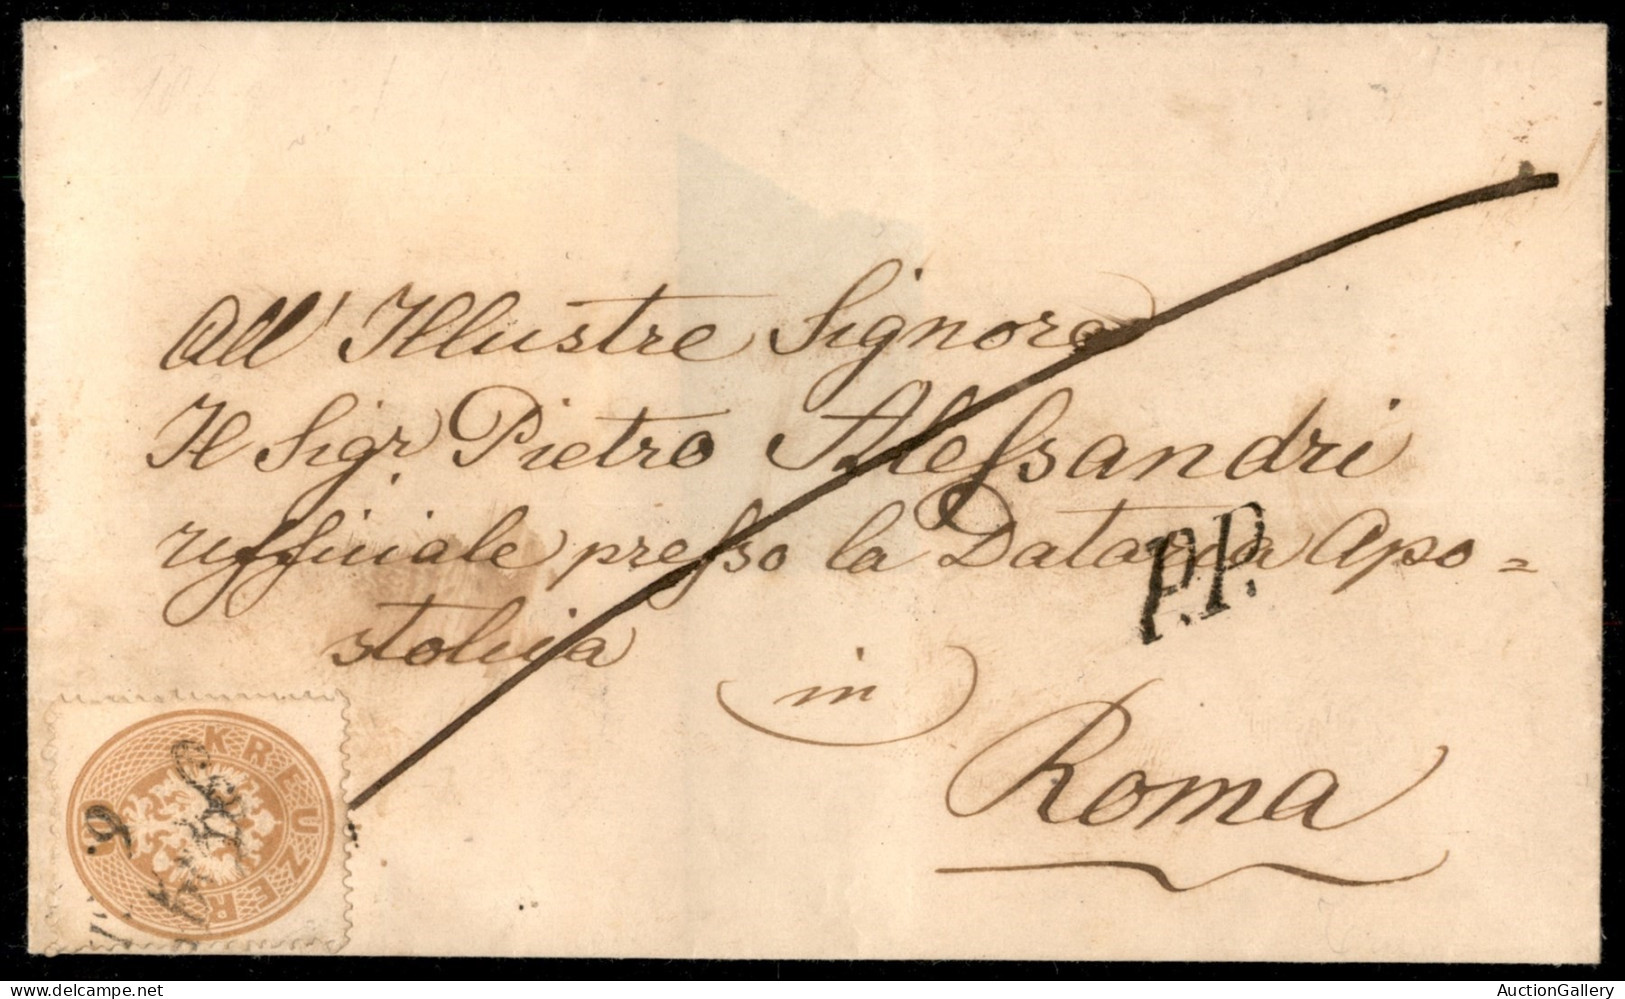 All' Illustre Signore
Il Sigr Pietro Alessandri
uffiziale presso la Dataria Apo=
stolica
P.P.
in
Roma
KREUZER
delcampe.net
AuctionGallery